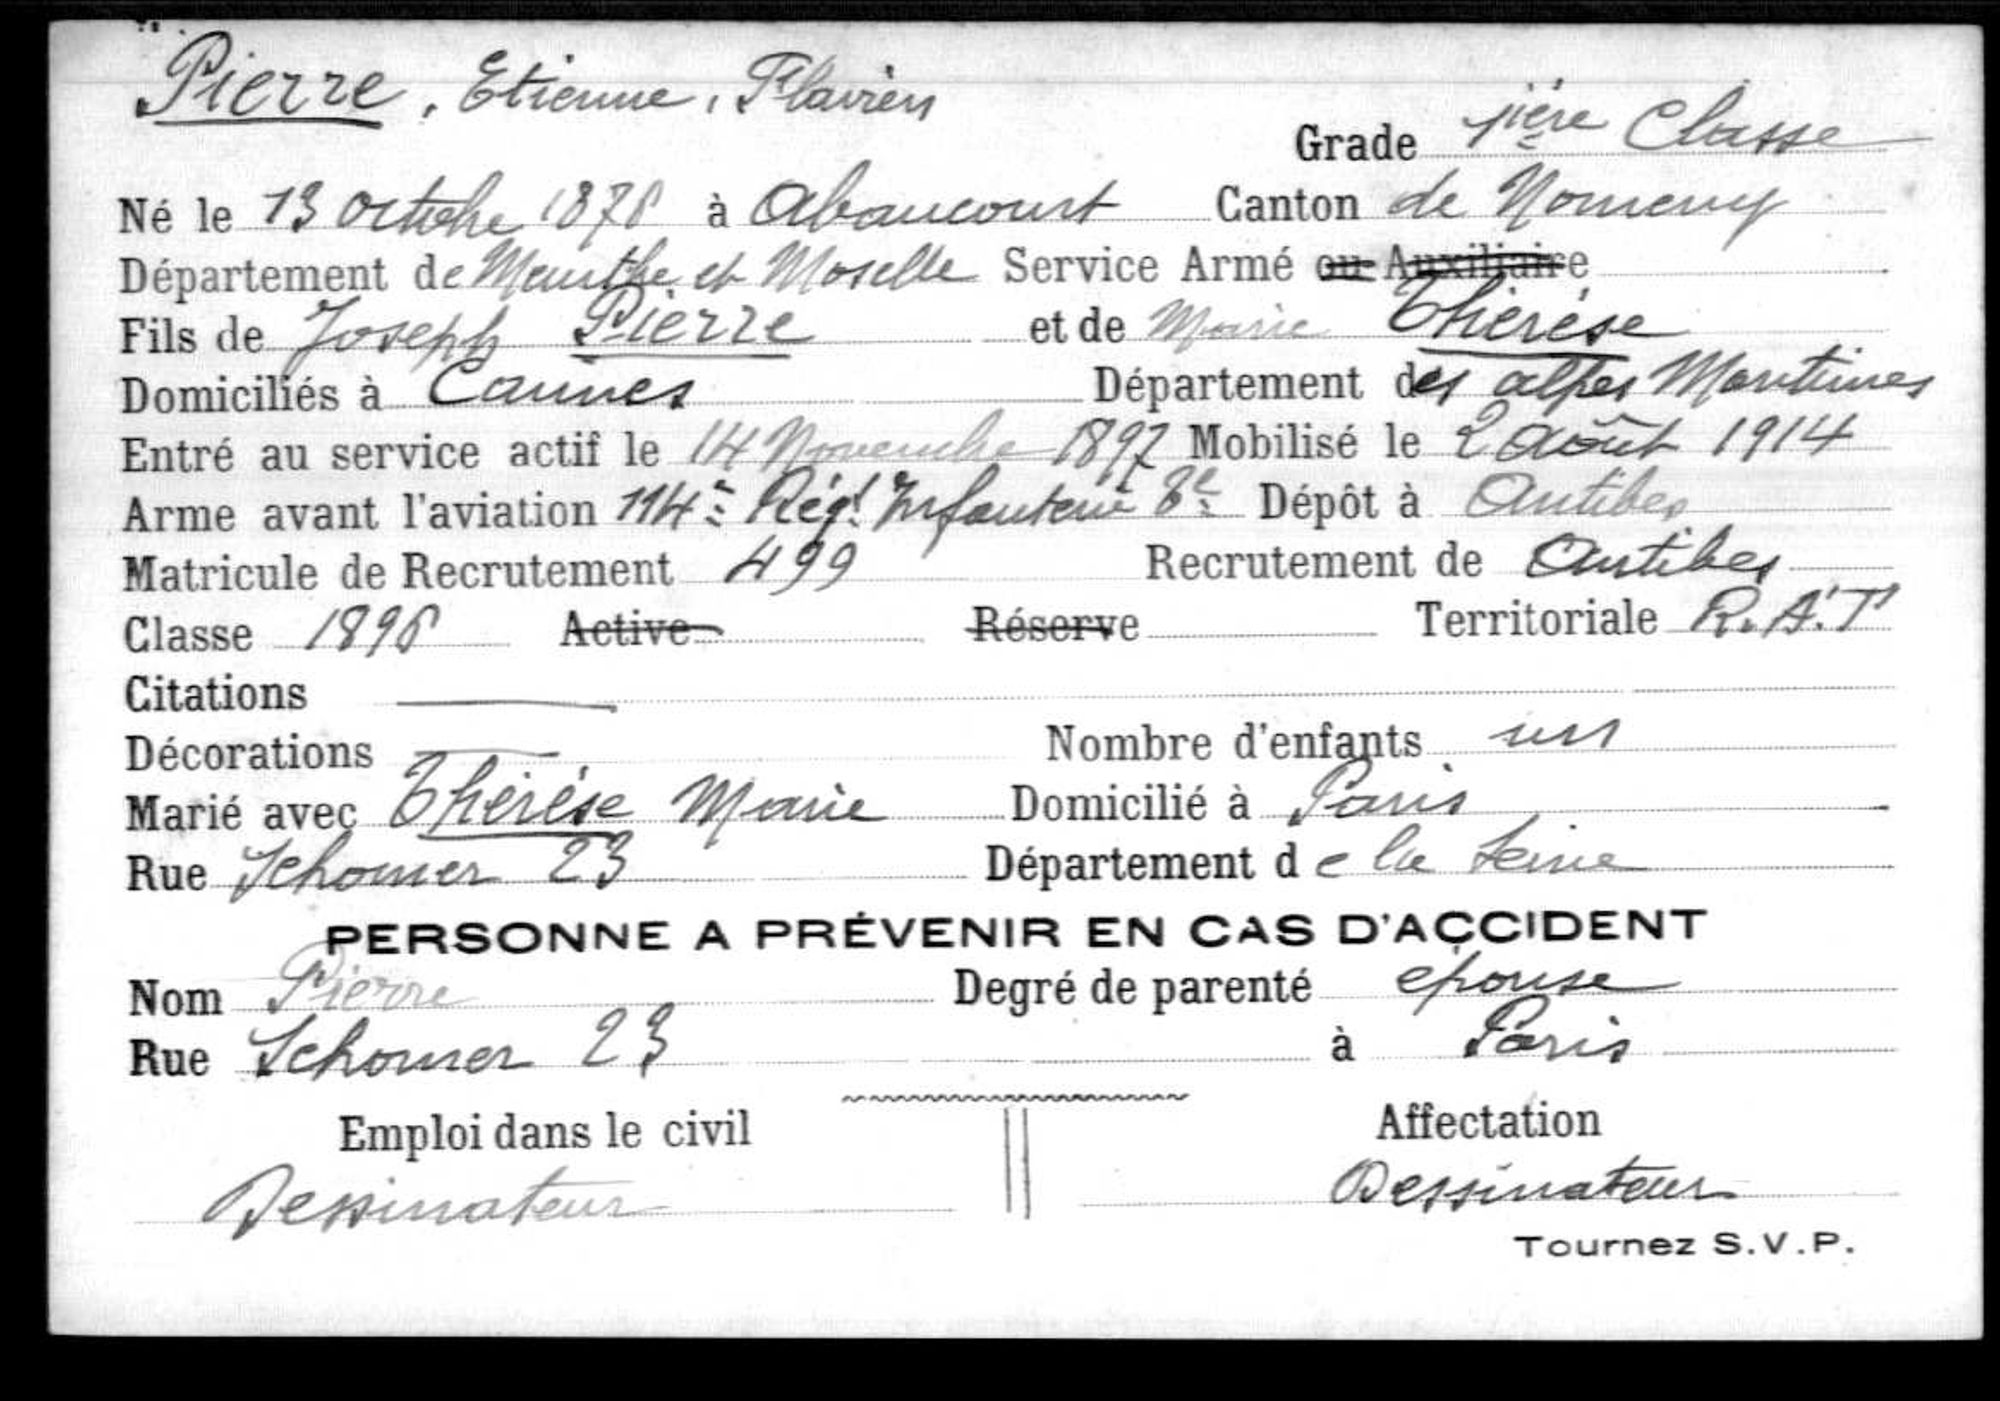 Pierre, Etienne, Flavien
Grade 1ière Classe
Né le 13 octobre 1878 à Abaucourt Canton de Nomeny
Département de Meurthe et Moselle Service Armé ou Auxiliaire
Fils de Joseph Pierre et de Marie Thérèse
Domiciliés à Cannes Département des alpes Maritimes
Entré au service actif le 14 Novembre 1897 Mobilisé le 2 Août 1914
Arme avant l'aviation 114e Régt Infanterie Dépôt à Antibes
Matricule de Recrutement 499 Recrutement de Antibes
Classe 1898 Active Réserve Territoriale R.A.T
Citations
Décorations Nombre d'enfants un
Marié avec Thérèse Marie Domicilié à Paris
Rue Schomer 23 Département de la Seine
PERSONNE A PRÉVENIR EN CAS D'ACCIDENT
Nom Pierre Degré de parenté épouse
Rue Schomer 23 à Paris
Emploi dans le civil Affectation
Dessinateur Dessinateur
Tournez S.V.P.